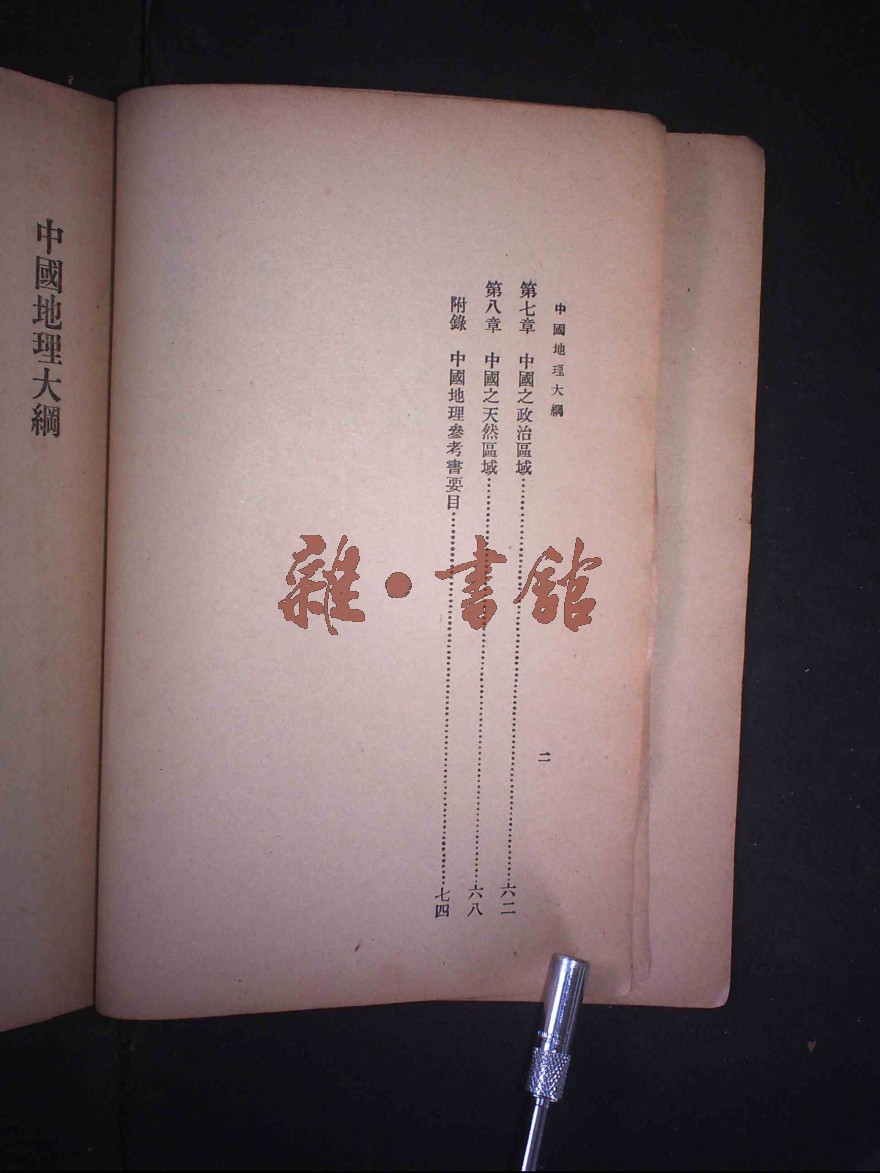 中國地理大綱
二
第七章　中國之政治區域……六二
第八章　中國之天然區域……六八
附錄　中國地理參考書要目……七四
中國地理大綱
雜·書館